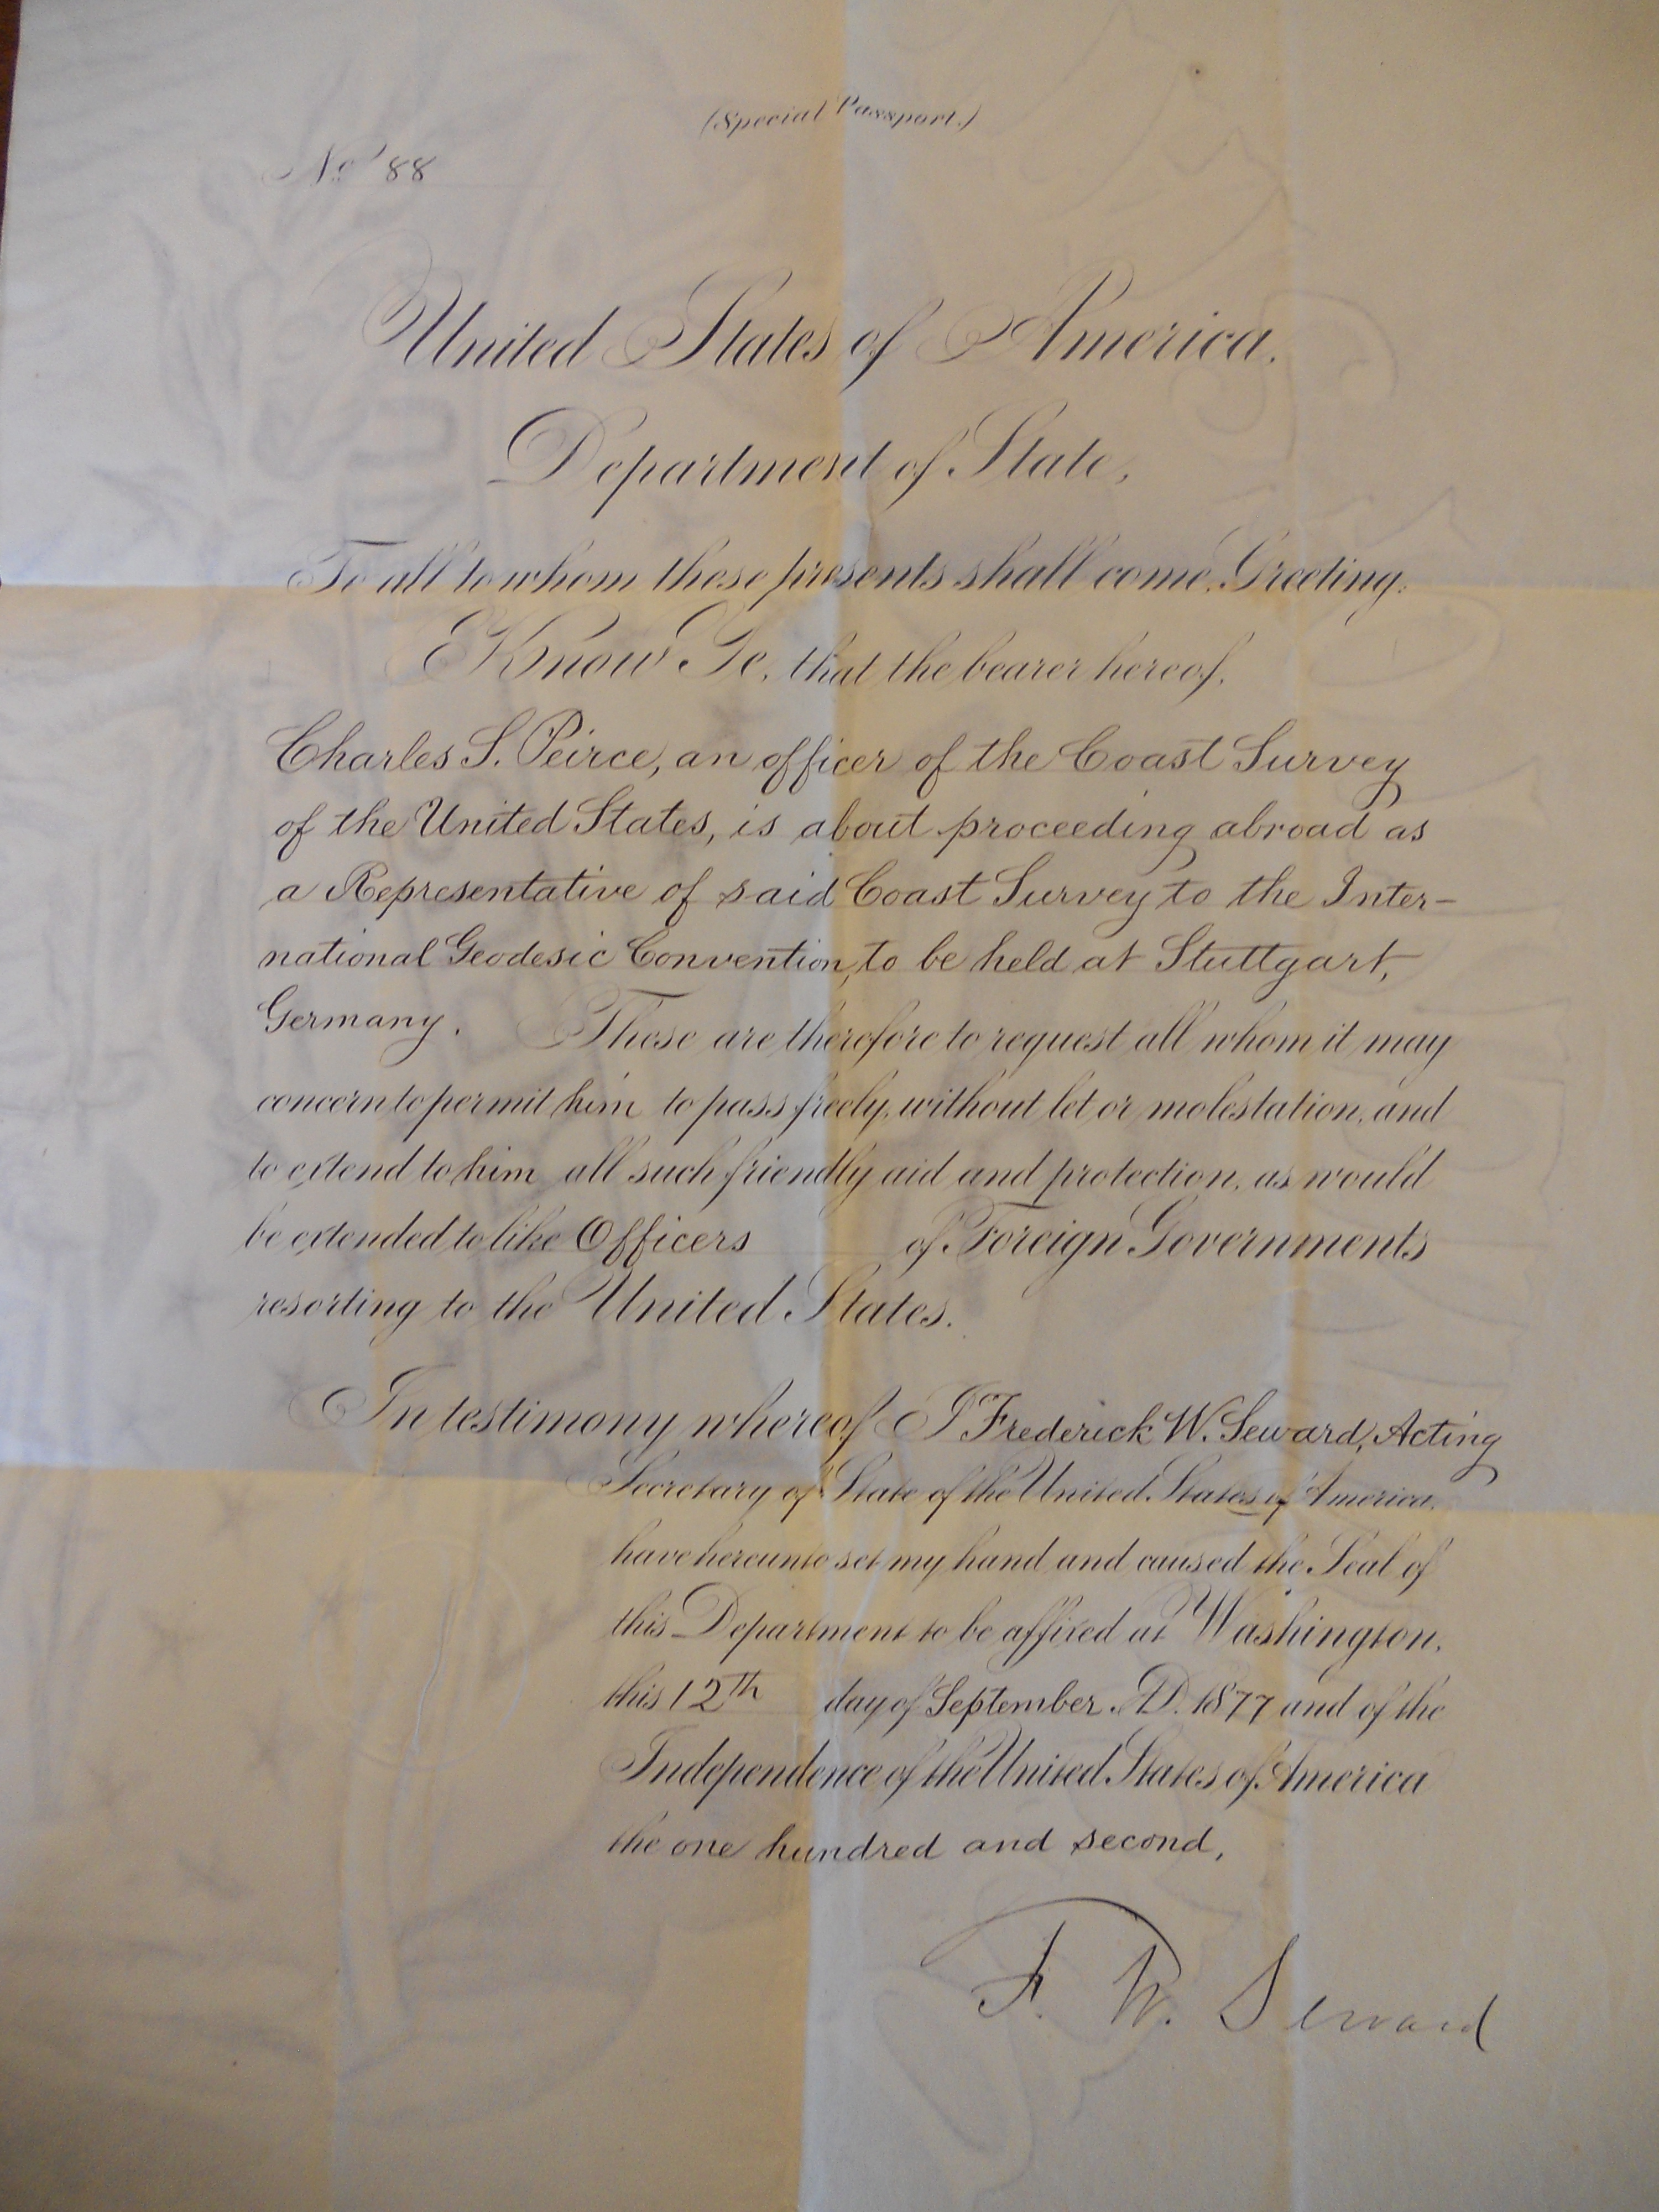 (Special Passport.)
No 88
United States of America.
Department of State,
To all to whom these presents shall come, Greeting:
Know Ye, that the bearer hereof,
Charles S. Peirce, an officer of the Coast Survey
of the United States, is about proceeding abroad as
a Representative of said Coast Survey to the Inter-
national Geodesic Convention, to be held at Stuttgart,
Germany. These are therefore to request all whom it may
concern to permit him to pass freely, without let or molestation, and
to extend to him all such friendly aid and protection, as would
be extended to like Officers of Foreign Governments
resorting to the United States.
In testimony whereof I Frederick W. Seward, Acting
Secretary of State of the United States of America,
have hereunto set my hand and caused the Seal of
this Department to be affixed at Washington,
this 12th day of September A.D. 1877 and of the
Independence of the United States of America
the one hundred and second,
F. W. Seward